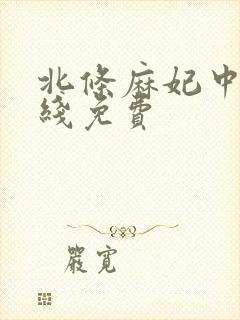 北條麻妃中
綫免費
嚴寬